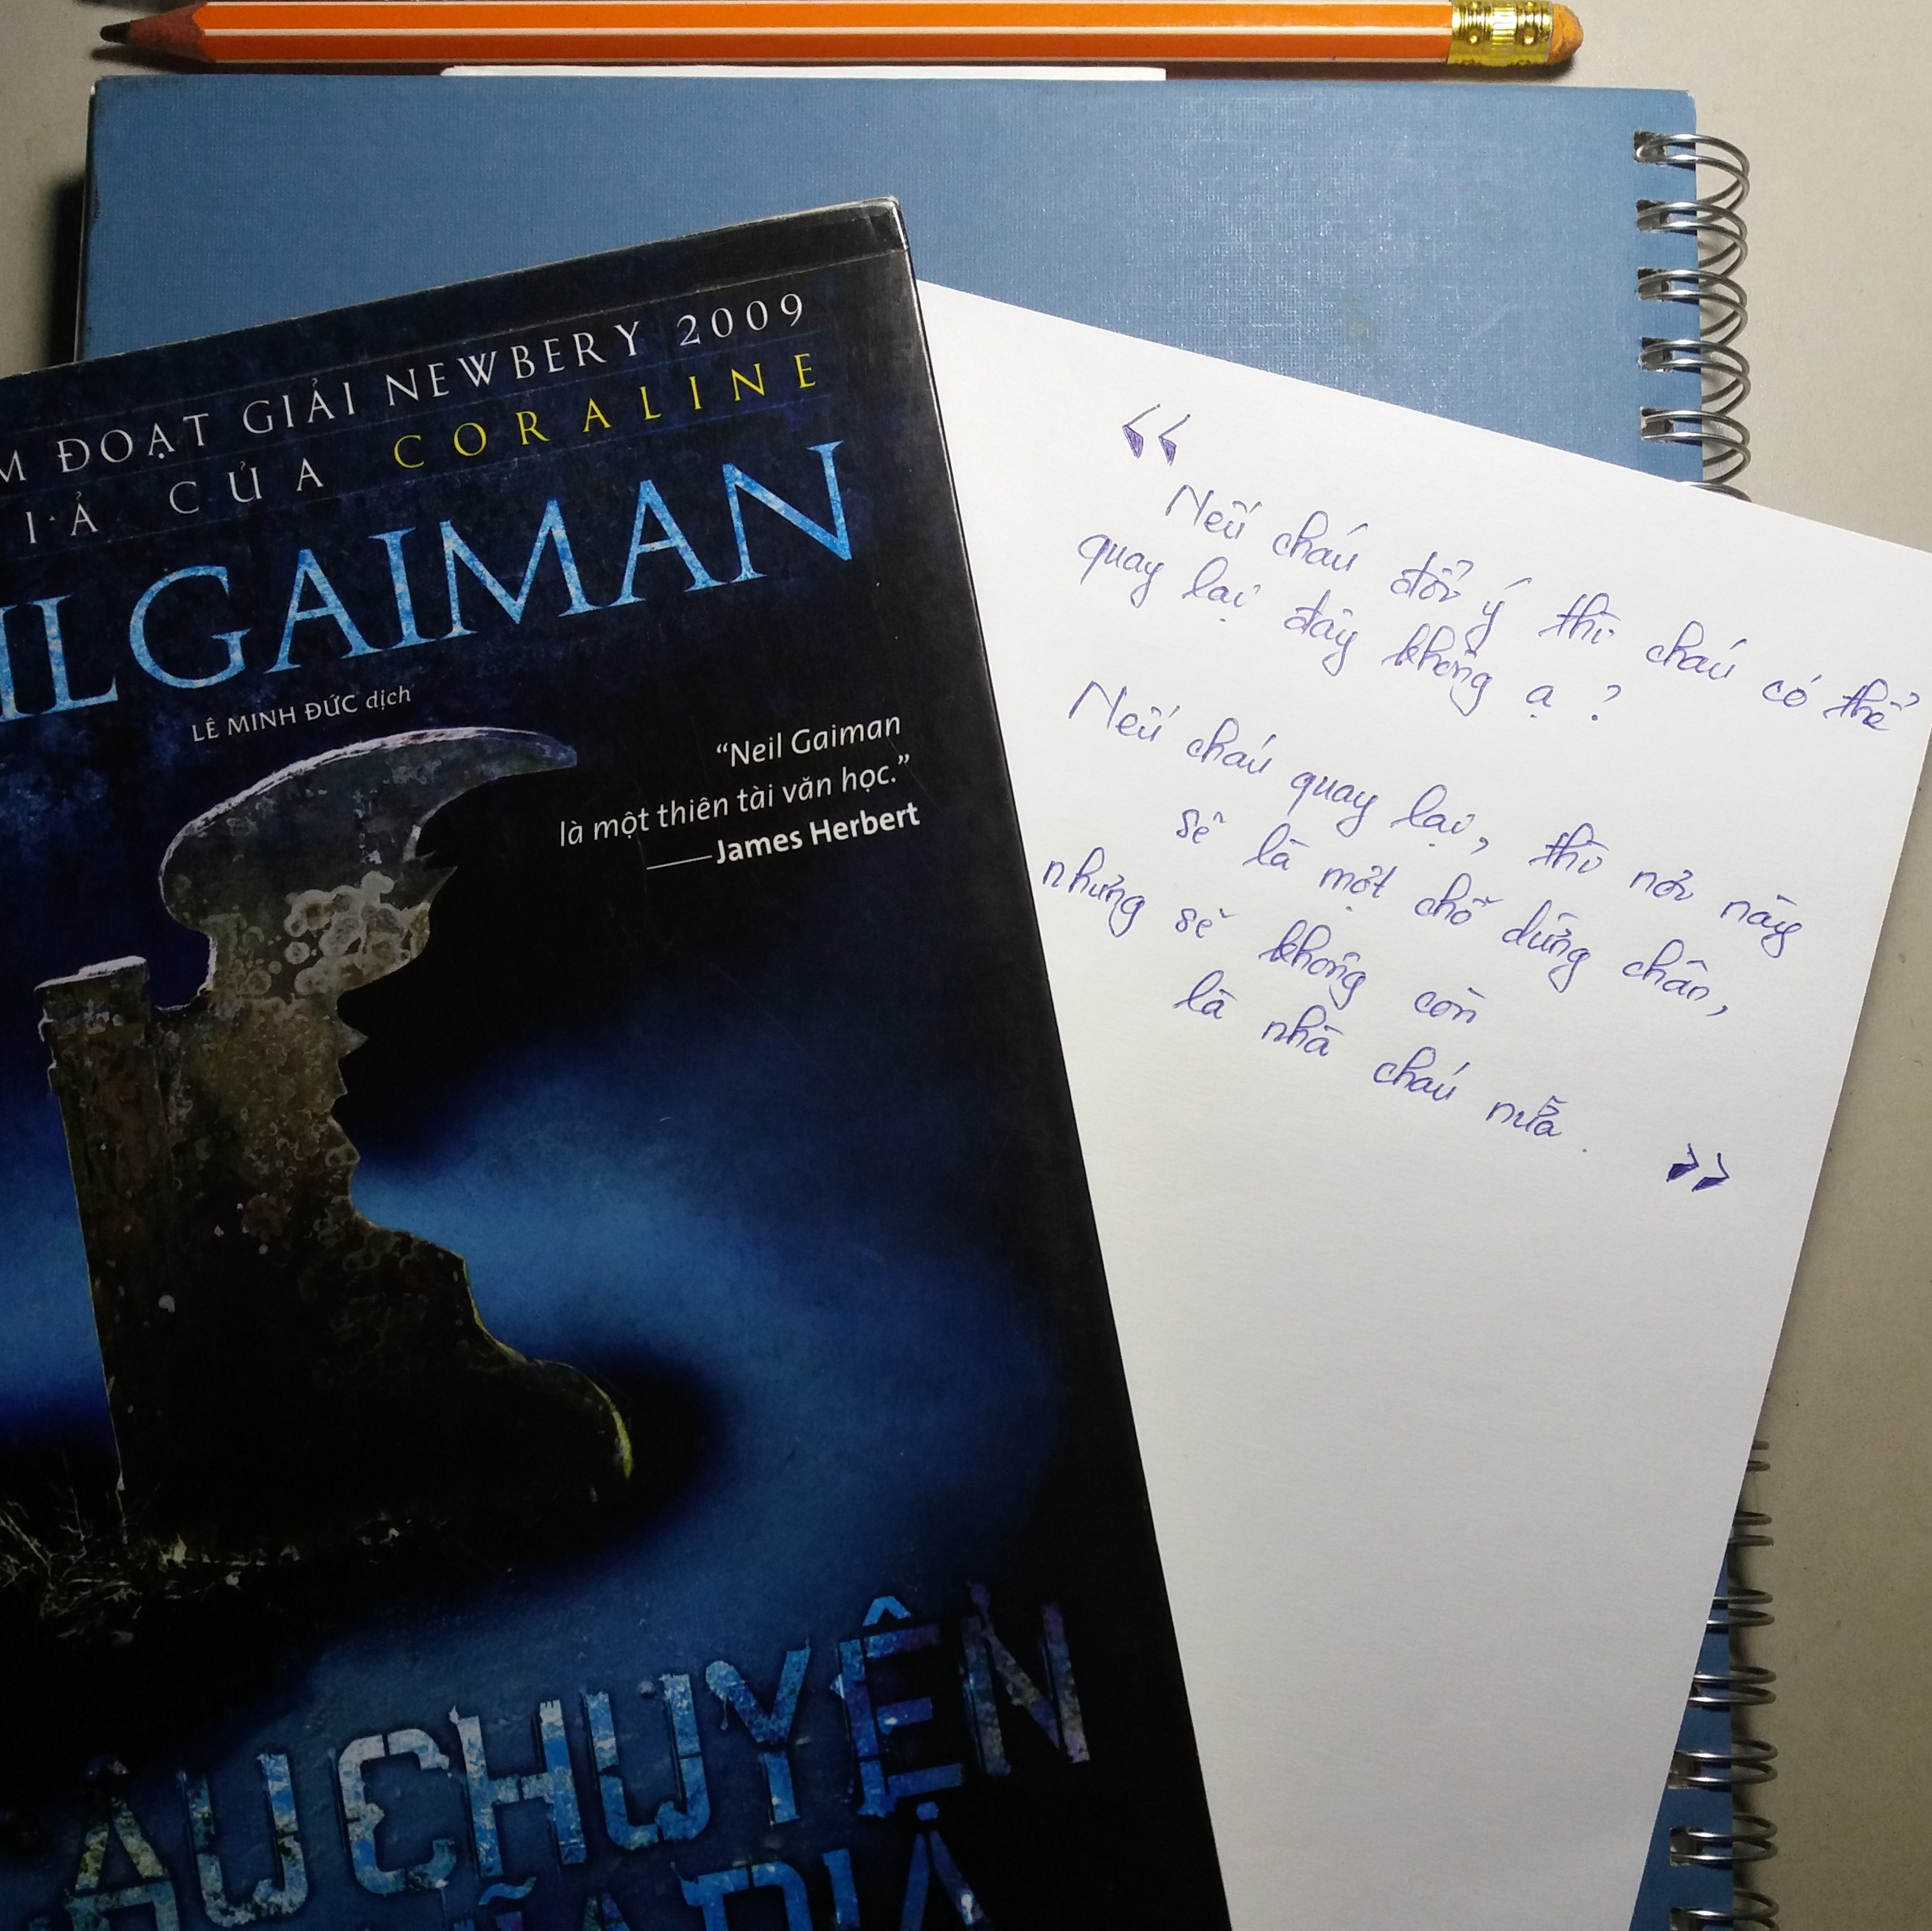 M ĐOẠT GIẢI NEWBERY 2009
IẢ CỦA CORALINE
IL GAIMAN
LÊ MINH ĐỨC dịch
“Neil Gaiman
là một thiên tài văn học.”
James Herbert
ÂU CHUYỆN
“
Nếu cháu đổi ý thì cháu có thể
quay lại đây không ạ ?
Nếu cháu quay lại, thì nơi này
sẽ là một chỗ dừng chân,
nhưng sẽ không còn
là nhà cháu nữa.
”